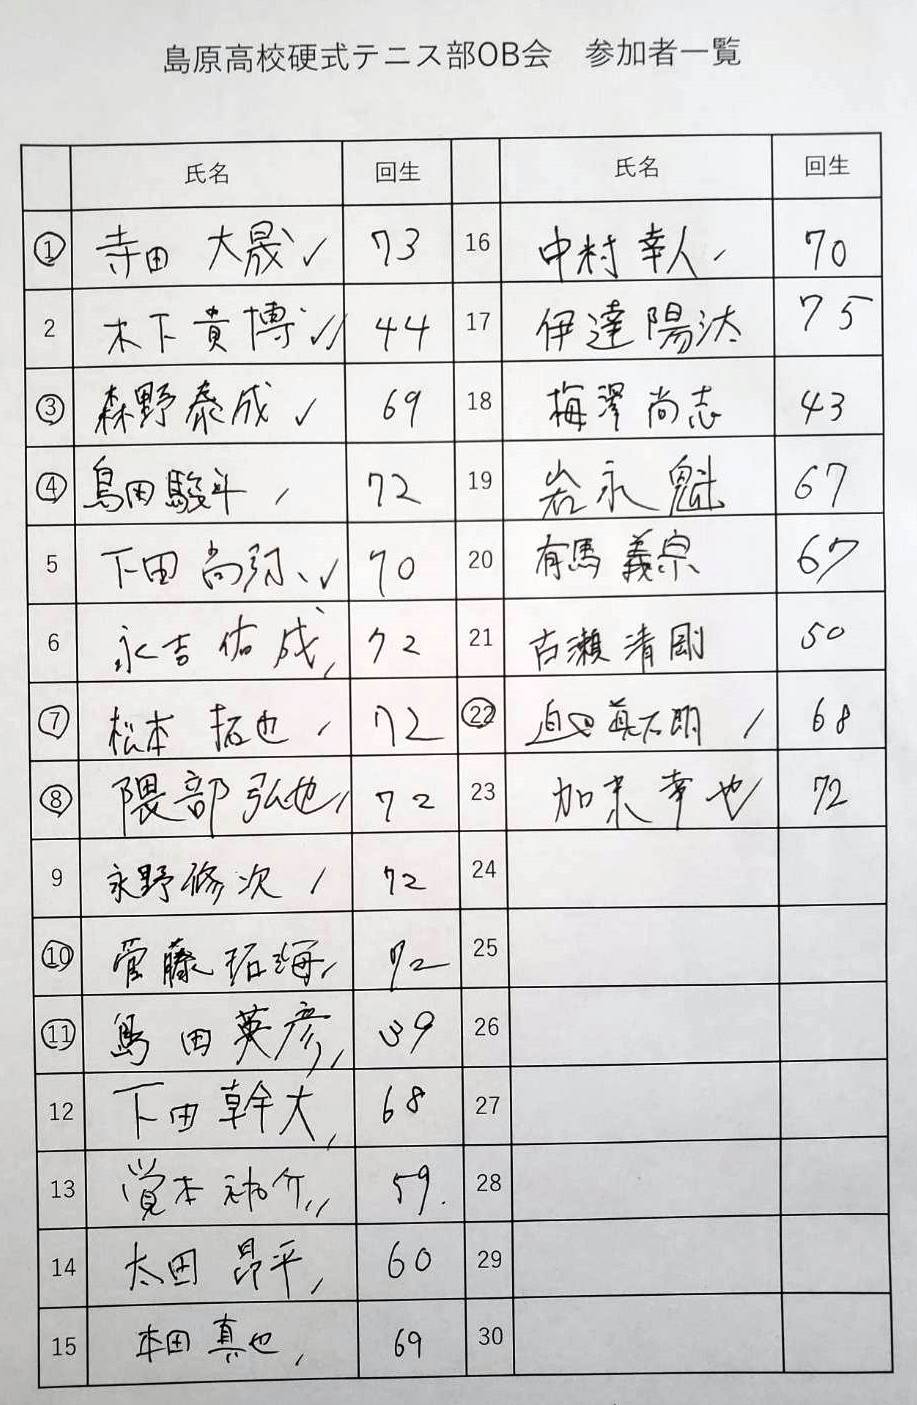 島原高校硬式テニス部OB会　参加者一覧
氏名 回生 氏名 回生
① 寺田 大晟 ✓ 73
2 木下 貴博 ✓/ 44
③ 森野 泰成 ✓ 69
④ 島田 駿斗 / 72
5 下田 尚弥 ✓ 70
6 永吉 佑成 / 72
⑦ 松本 拓也 / 72
⑧ 隈部 弘也 / 72
9 永野 修次 / 72
⑩ 菅藤 拓海 / 72
⑪ 島田 英彦 / 39
12 下田 幹大 / 68
13 本 祐介 // 59.
14 太田 昂平 / 60
15 本田 真也 / 69
16 中村 幸人 / 70
17 伊達 陽汰 75
18 梅澤 尚志 43
19 岩永 魁 67
20 有馬 義宗 67
21 古瀬 清剛 50
㉒ / 68
23 加来 幸也 72
24
25
26
27
28
29
30